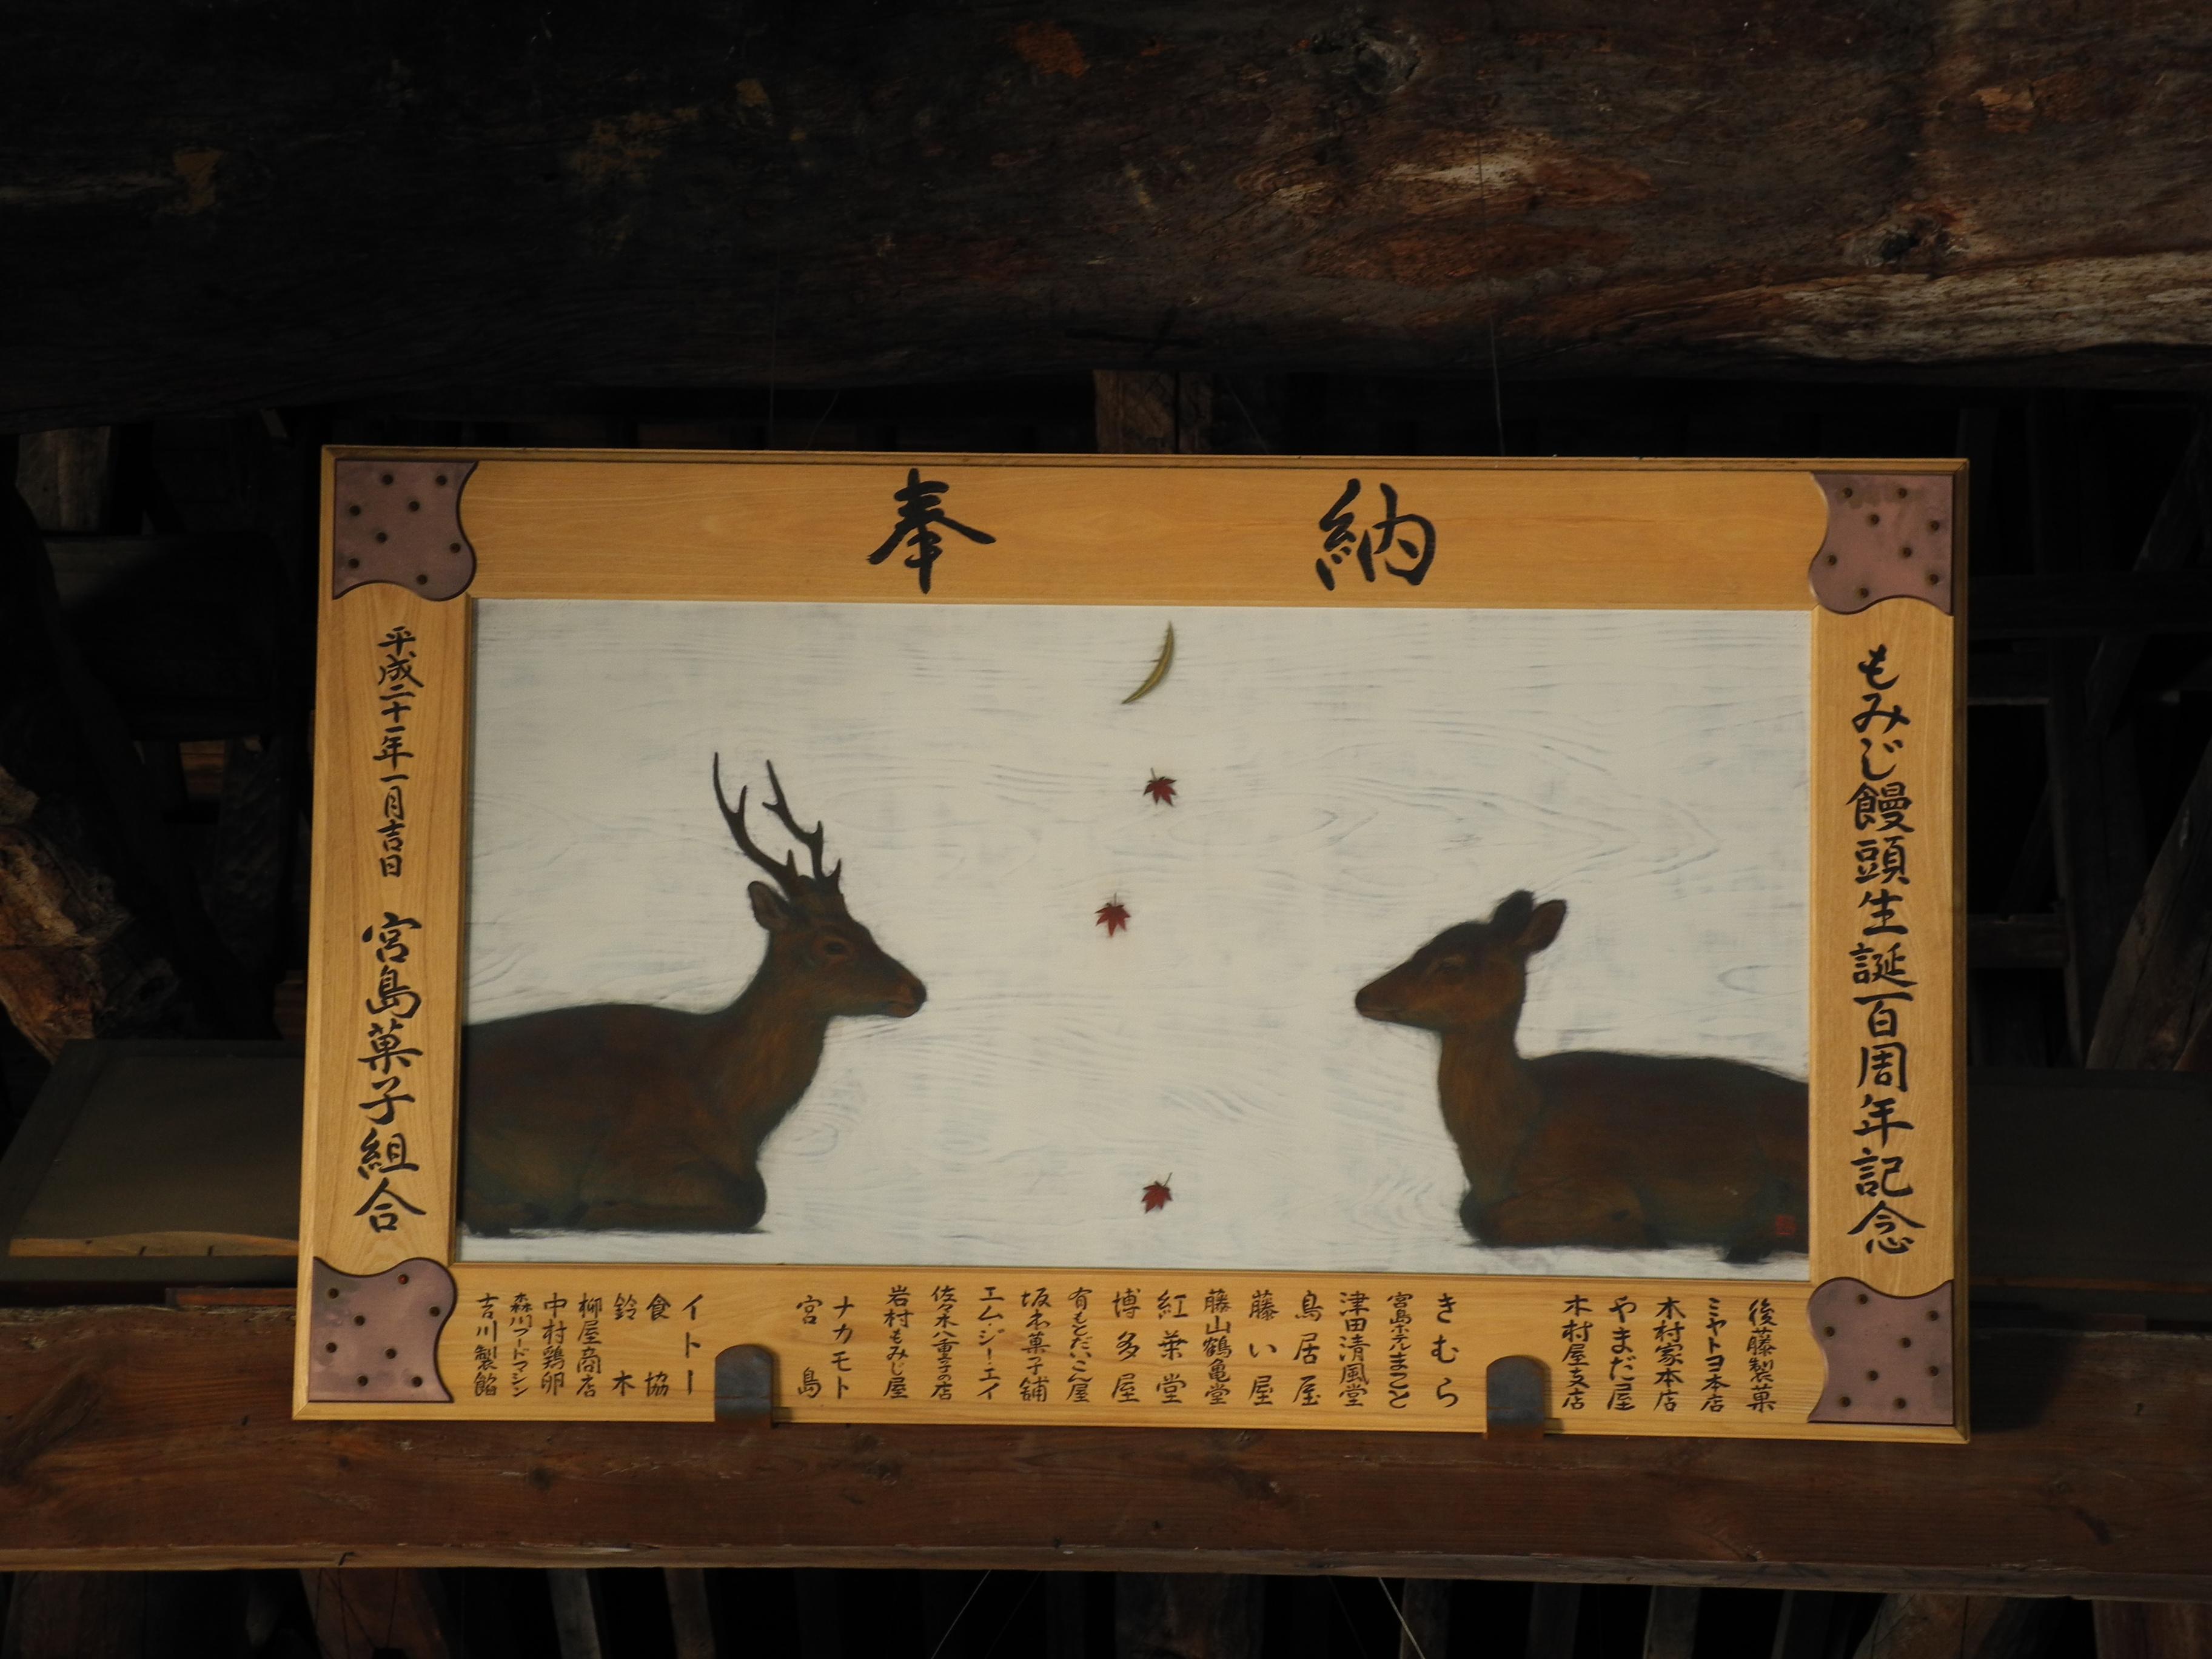 奉納
もみじ饅頭生誕百周年記念
後藤製菓
ミヤトヨ本店
木村家本店
やまだ屋
木村屋支店
きむら
宮島ホテルまこと
津田清風堂
鳥居屋
藤い屋
藤山鶴亀堂
紅葉堂
博多屋
有もとだいこん屋
坂本菓子舗
エムジー・エイ
佐々木八重子の店
岩村もみじ屋
ナカモト
宮島
イトー
食協
鈴木
柳屋商店
中村鶏卵
森川フードマシン
吉川製餡
平成二十一年一月吉日 宮島菓子組合